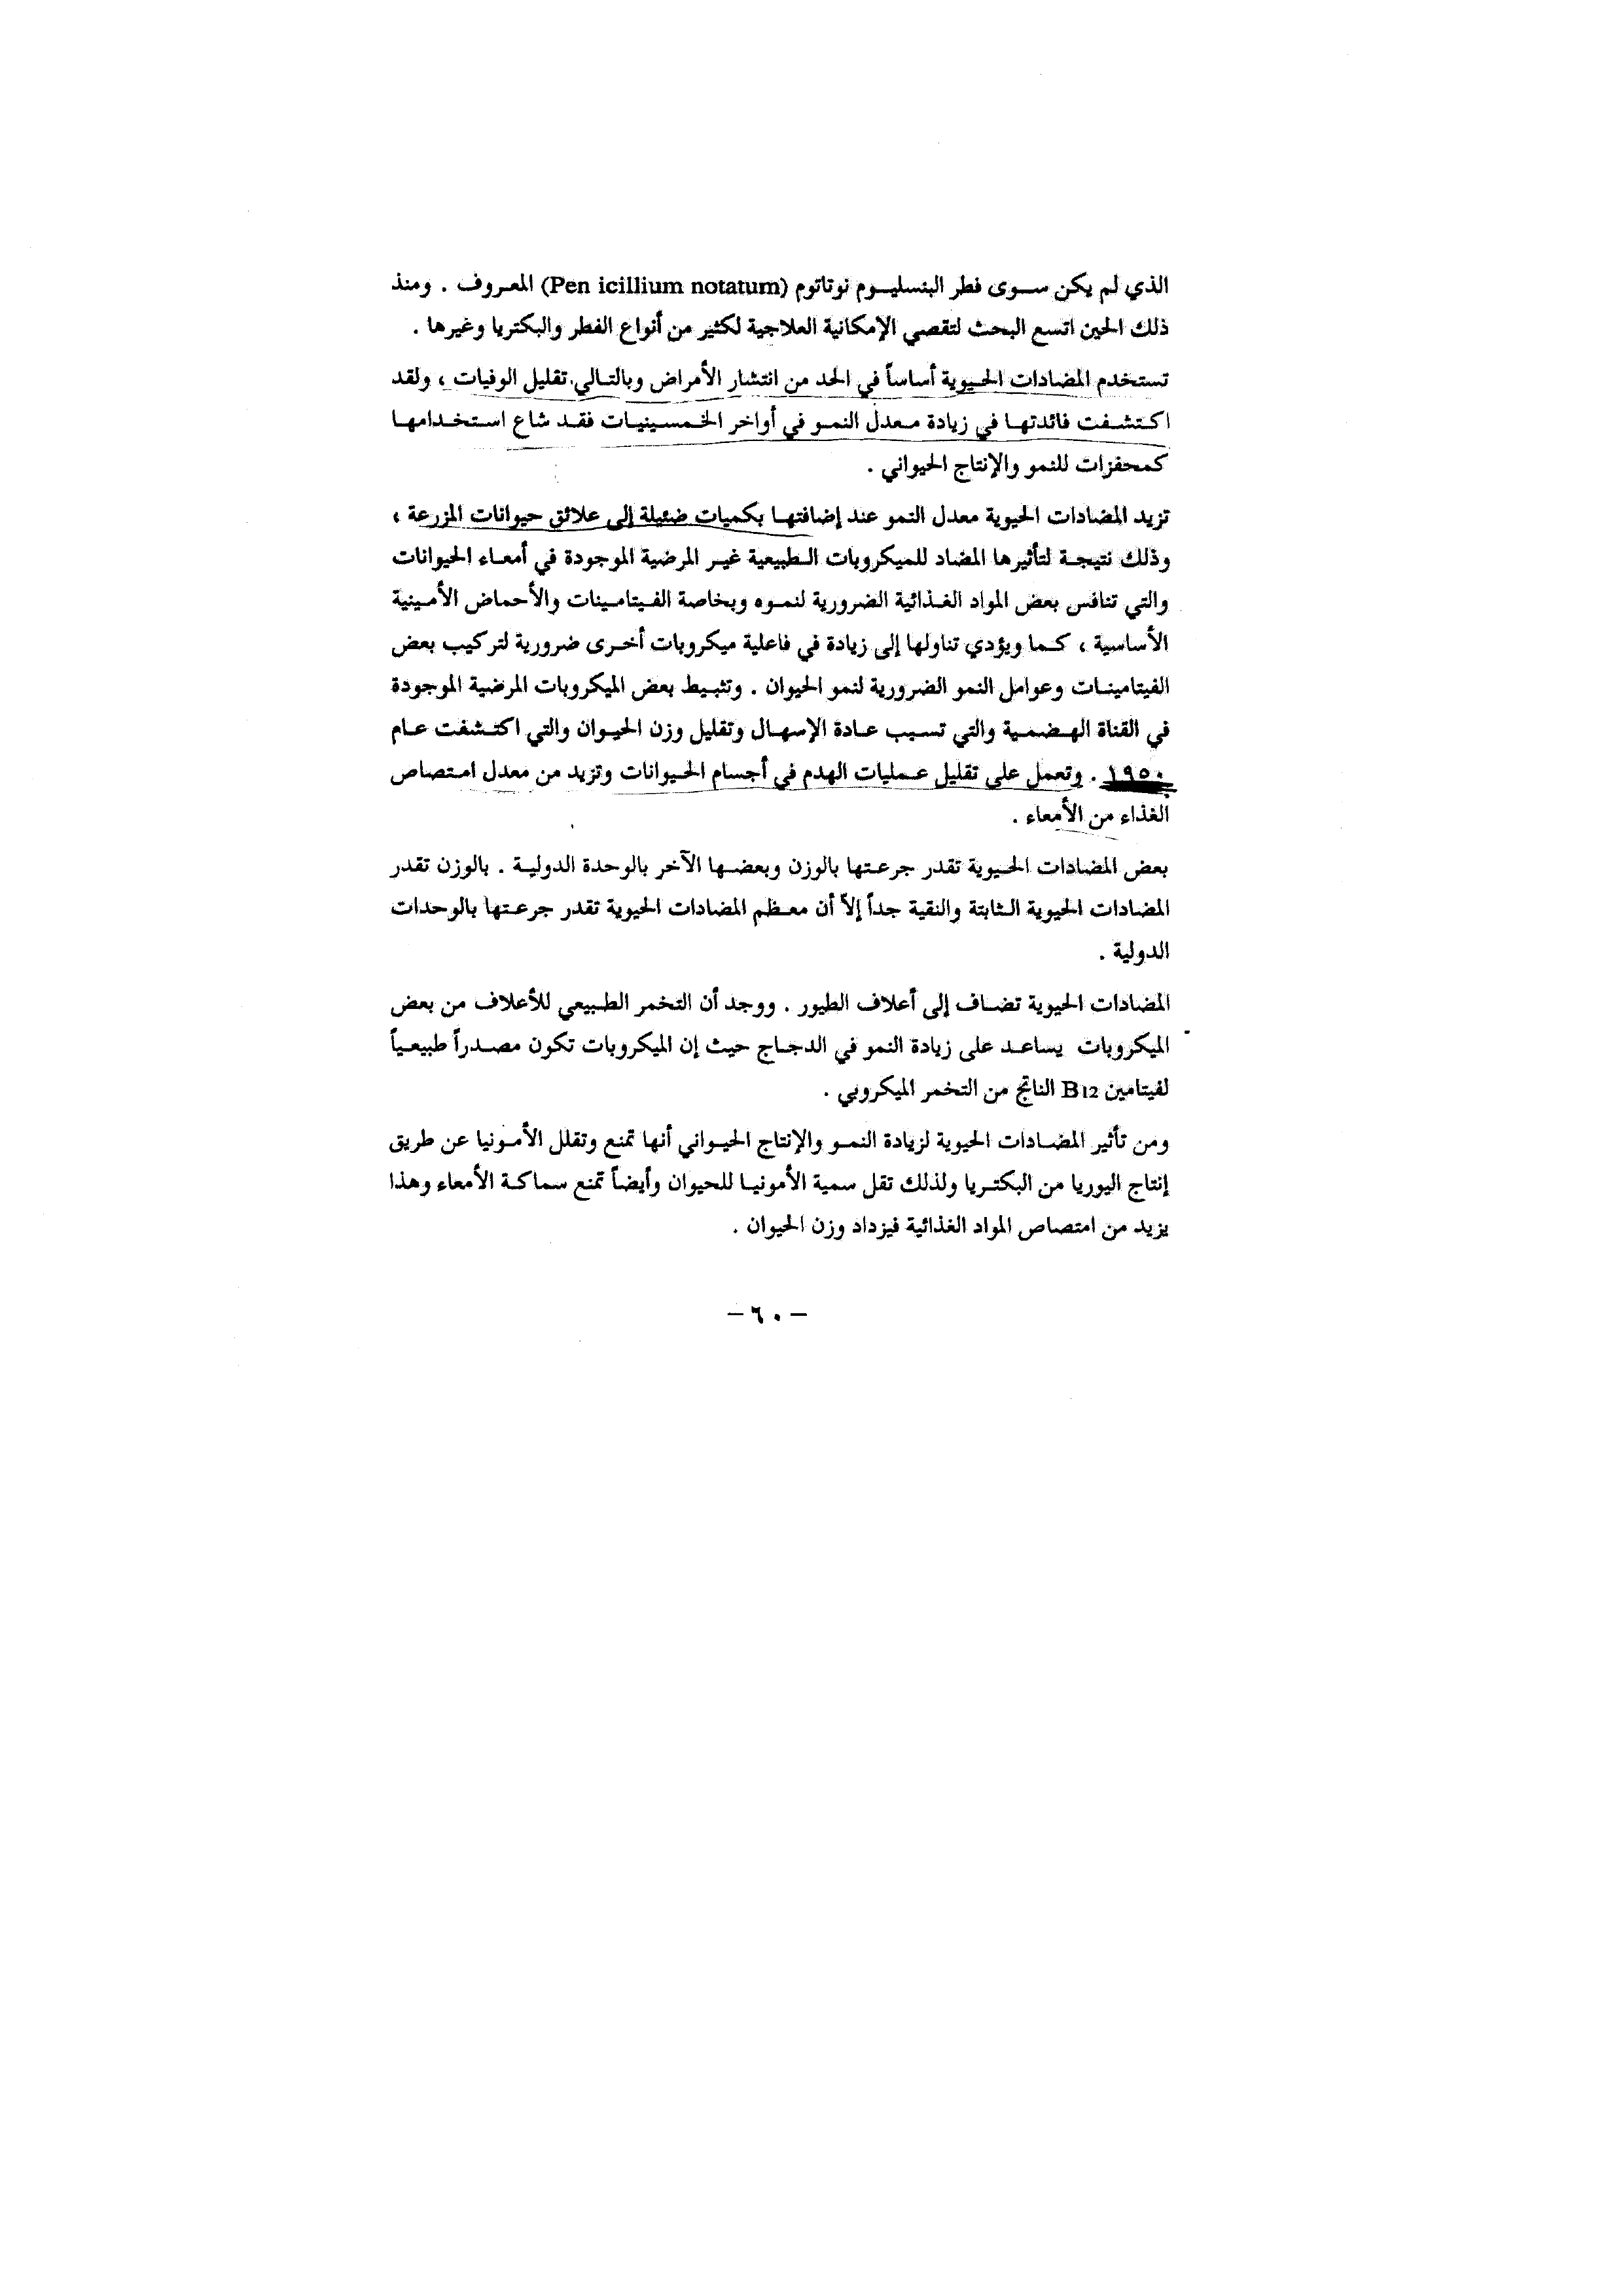 الذي لم يكن سوى فطر البنسليوم نوتاتوم (Pen icillium notatum) المعروف . ومنذ
ذلك الحين اتسع البحث لتقصي الإمكانية العلاجية لكثير من أنواع الفطر والبكتريا وغيرها .
تستخدم المضادات الحيوية أساساً في الحد من انتشار الأمراض وبالتالي تقليل الوفيات ، ولقد
اكتشفت فائدتها في زيادة معدل النمو في أواخر الخمسينيات فقد شاع استخدامها
كمحفزات للنمو والإنتاج الحيواني .
تزيد المضادات الحيوية معدل النمو عند إضافتها بكميات ضئيلة إلى علائق حيوانات المزرعة ،
وذلك نتيجة لتأثيرها المضاد للميكروبات الطبيعية غير المرضية الموجودة في أمعاء الحيوانات
والتي تنافس بعض المواد الغذائية الضرورية لنموه وبخاصة الفيتامينات والأحماض الأمينية
الأساسية ، كما ويؤدي تناولها إلى زيادة في فاعلية ميكروبات أخرى ضرورية لتركيب بعض
الفيتامينات وعوامل النمو الضرورية لنمو الحيوان . وتثبيط بعض الميكروبات المرضية الموجودة
في القناة الهضمية والتي تسبب عادة الإسهال وتقليل وزن الحيوان والتي اكتشفت عام
١٩٥٠ . وتعمل على تقليل عمليات الهدم في أجسام الحيوانات وتزيد من معدل امتصاص
الغذاء من الأمعاء .
بعض المضادات الحيوية تقدر جرعتها بالوزن وبعضها الآخر بالوحدة الدولية . بالوزن تقدر
المضادات الحيوية الثابتة والنقية جداً إلاّ أن معظم المضادات الحيوية تقدر جرعتها بالوحدات
الدولية .
المضادات الحيوية تضاف إلى أعلاف الطيور . ووجد أن التخمر الطبيعي للأعلاف من بعض
الميكروبات يساعد على زيادة النمو في الدجاج حيث إن الميكروبات تكون مصدراً طبيعياً
لفيتامين B12 الناتج من التخمر الميكروبي .
ومن تأثير المضادات الحيوية لزيادة النمو والإنتاج الحيواني أنها تمنع وتقلل الأمونيا عن طريق
إنتاج اليوريا من البكتريا ولذلك تقل سمية الأمونيا للحيوان وأيضاً تمنع سماكة الأمعاء وهذا
يزيد من امتصاص المواد الغذائية فيزداد وزن الحيوان .
– ٦٠ –